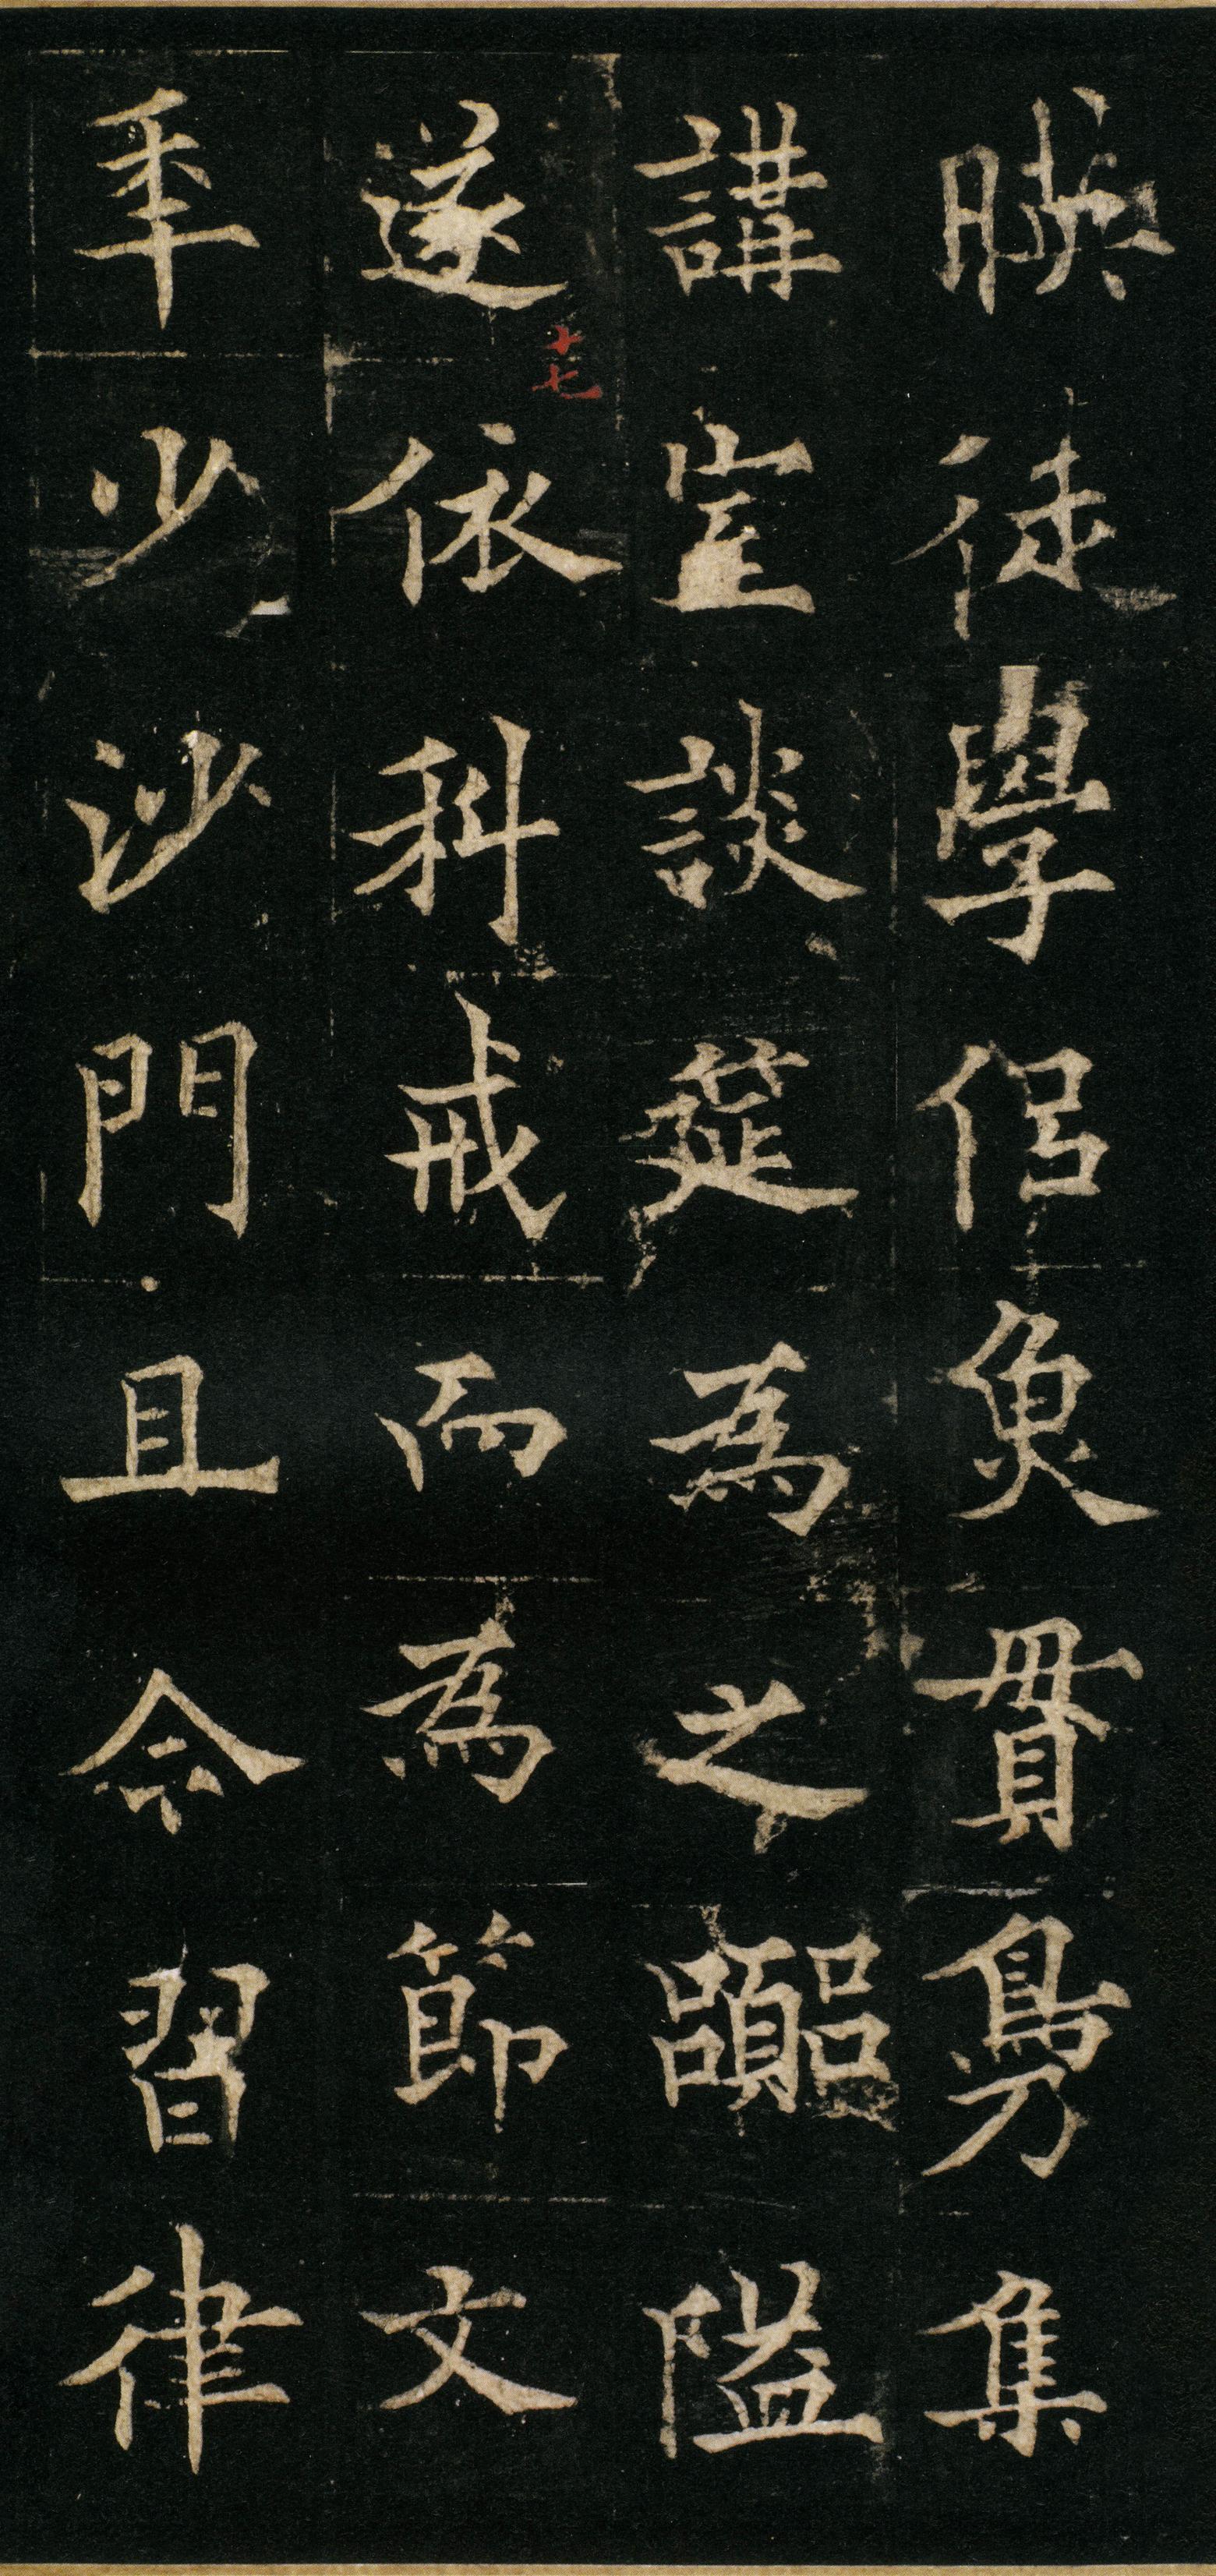 暎徒學侶魚貫鳧集
講堂談筵為之囂隘
遂依科戒而為節文
秊少沙門且令習律
十七